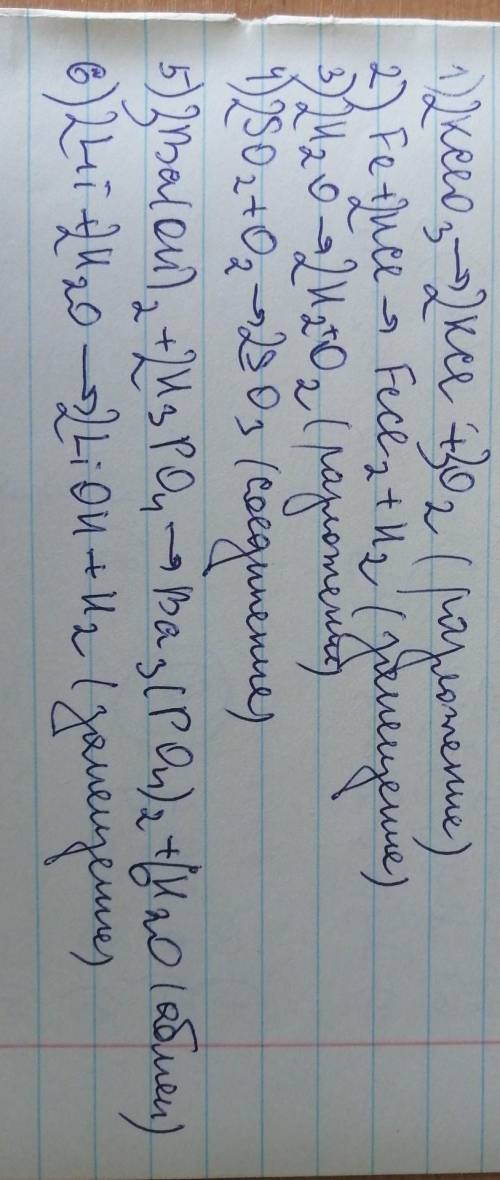 1) 2KClO3 → 2KCl + 3O2 (разложение)
2) Fe + 2HCl → FeCl2 + H2 (замещение)
3) 2H2O → 2H2 + O2 (разложение)
4) 2SO2 + O2 → 2SO3 (соединение)
5) 3Ba(OH)2 + 2H3PO4 → Ba3(PO4)2 + 6H2O (обмен)
6) 2Li + 2H2O → 2LiOH + H2 (замещение)